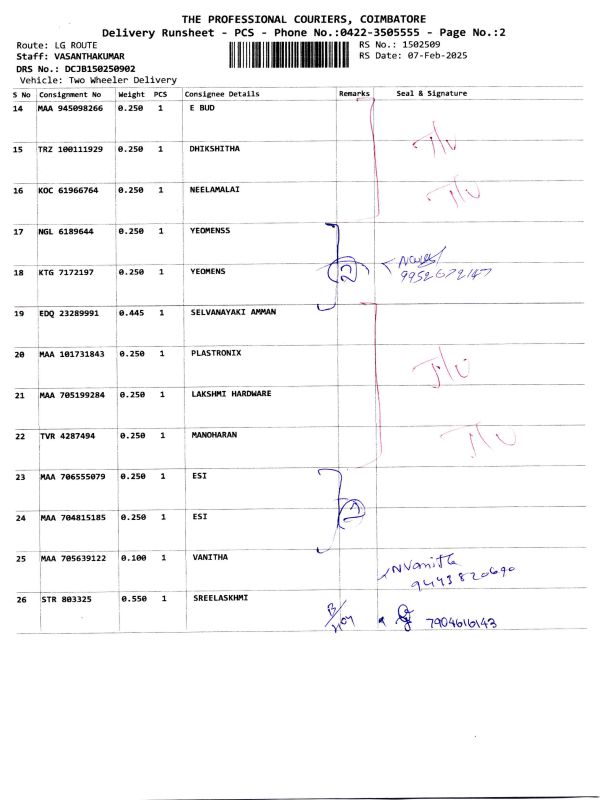 THE PROFESSIONAL COURIERS, COIMBATORE
Delivery Runsheet - PCS - Phone No.:0422-3505555 - Page No.:2
Route: LG ROUTE
RS No.: 1502509
Staff: VASANTHAKUMAR
RS Date: 07-Feb-2025
DRS No.: DCJB150250902
Vehicle: Two Wheeler Delivery
S No Consignment No Weight PCS Consignee Details Remarks Seal & Signature
14 MAA 945098266 0.250 1 E BUD
15 TRZ 100111929 0.250 1 DHIKSHITHA
16 KOC 61966764 0.250 1 NEELAMALAI
17 NGL 6189644 0.250 1 YEOMENSS
18 KTG 7172197 0.250 1 YEOMENS 2
9952672147
19 EDQ 23289991 0.445 1 SELVANAYAKI AMMAN
20 MAA 101731843 0.250 1 PLASTRONIX
21 MAA 705199284 0.250 1 LAKSHMI HARDWARE
22 TVR 4287494 0.250 1 MANOHARAN
23 MAA 706555079 0.250 1 ESI
24 MAA 704815185 0.250 1 ESI
25 MAA 705639122 0.100 1 VANITHA NVanitha
9443820690
26 STR 803325 0.550 1 SREELASKHMI 7904616143